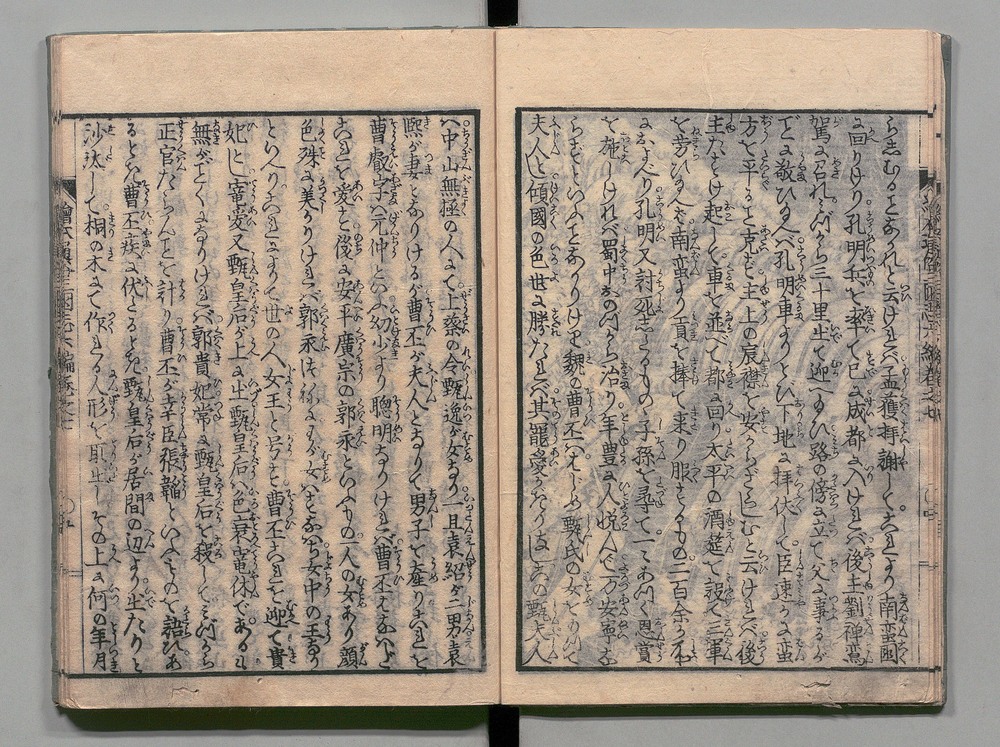 らしむることなかれと云ければ孟獲拝謝しこれより南蛮国
に回けり孔明兵を率て已に成都にいりければ後主劉禅鸞
駕に召れみづから三十里出て迎へ玉ひ路の傍に立て父に事るが
ごとく敬ひ玉へば孔明車よりとび下地に拝伏して臣速かに蛮
方を平ること克ず主上の宸襟を安からざらしむと云ければ後
主たすけ起して車を並べて都に回り太平の酒莚を設く三軍
を労ひ玉へば南蛮より貢を捧て来り服するもの二百余ヶ
におよべり孔明又討死したるものゝ子孫を尋て一々あつく恩賞
を施しければ蜀中おのづから治り年豊に人悦んで万安寧な
らずといふことなかりけり魏の曹丕はじめ甄氏の女をいれて
夫人とし傾國の色世に勝たれば其寵愛かぎりなしこの甄夫人
ハ中山無極の人にて上蔡の令甄逸が女なり一旦袁紹が二男袁
熙が妻となりけるが曹丕が夫人となりて男子を産りこれを
曹叡字ハ元仲といふ幼少より聰明なりければ曹丕
これを愛せり後に安平廣宗の郭永といふもの一人の女あり顔
色殊に美なりければ郭永つねにわが女はすなはち女中の王なり
といへりこれによりて世の人女王と号す曹丕これを迎て貴
妃とし寵愛又甄皇后が上に出甄皇后ハ色衰寵休であるに
無がごとくなりければ郭貴妃常に甄皇后を殺してみづから
正官たらんことを計り曹丕が幸臣張韜といふものて語ひあ
るとき曹丕疾に伏したるとき甄皇后が居間の辺より出たりと
沙汰して桐の木にて作れる人形を取出しその上に何の年月